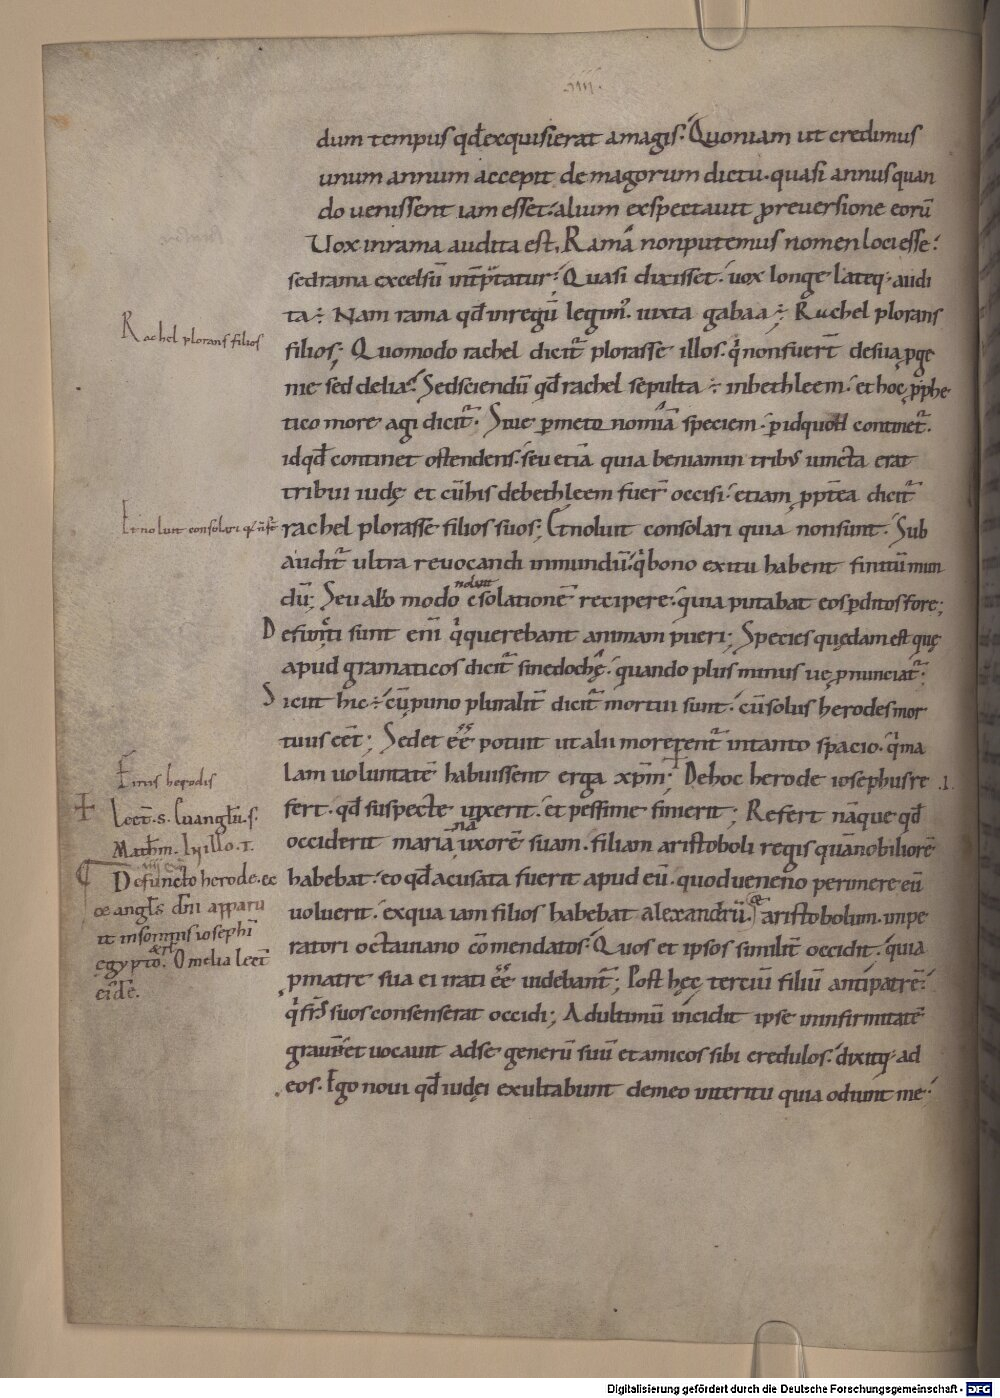 .iiii.
dum tempus qđ exquisierat a magis. Quoniam ut credimus
unum annum accepit de magorum dictu. quasi annus quan
do uenissent iam esset. alium exspectauit p reuersione eorū
Uox in rama audita est. Ramā non putemus nomen loci esse.
sed rama excelsū int̄p̄tatur. Quasi dixisset. uox longe lateq; audi
ta ÷ Nam rama qđ in regū legim̃. iuxta gabaa ÷ Rachel plorans
filios; Quomodo rachel dicit̃ plorasse illos. q̄ non fuer̄t de sua p̱ge
nie sed de lia? Sed sciendū qđ rachel sepulta ÷ in bethleem. et hoc p̱phe
tico more agi dicit̃. Siue p̱ metonomiā speciem. p id quod continet̃.
id qđ continet ostendens. seu etiā quia beniamin tribui iuncta erat
tribui iudę et cū his de bethleem fuer̄ occisi. etiam p̱pt̄ea dicit̃
rachel plorasse filios suos; Et noluit consolari quia non sunt. Sub
audit̃ ultra reuocandi in mundū. q̄ bono exitu habent finitū mun
dū; Seu alio modo noluit c̄solationē recipere. quia putabat eos p̱ditos fore;
Defuncti sunt eni̅ q̄ querebant animam pueri; Species quędam est quę
apud gramaticos dicit̃ sinedochę. quando plus minus ue p̱nunciat̃.
Sicut hic ÷ cū p uno pluralit̄ dicit̃ mortui sunt. cū solus herodes mor
tuus eēt; Sed et eē potuit ut alii morerent̃ in tanto spacio. q̄ ma
lam uoluntatē habuissent erga xp̄m; De hoc herode iosephus re .1.
fert. qđ suspecte uixerit. et pessime finierit; Refert nāque qđ
occiderit mariāna uxorē suam. filiam aristoboli regis quā nobiliorē
habebat. eo qđ acusata fuerit apud eū. quod ueneno perimere eū
uoluerit. ex qua iam filios habebat alexandrū. & aristobolum. impe
ratori octauiano cōmendatos. Quos et ipsos similit̄ occidit. quia
p matre sua ei irati eē uidebant̃; Post hęc tertiū filiū antipatrē.
q̄ fr̄s suos consenserat occidi; Ad ultimū incidit ipse in infirmitatē
grauē et uocauit ad se generū suū et amicos sibi credulos. dixitq; ad
eos. Ego noui qđ iudęi exultabunt de meo interitu quia odiunt me.
Rachel plorans filios
Et noluit consolari q̄ n̄ st̄
Finis herodis
Lect̄. s. Euanglii. s.
Math̄m.
Defuncto herode. ec
ce angl̄s dn̄i apparu
it in somnis ioseph in
egypto. & rl̄. Omelia lect̄
eiđe.
Digitalisierung gefördert durch die Deutsche Forschungsgemeinschaft - DFG